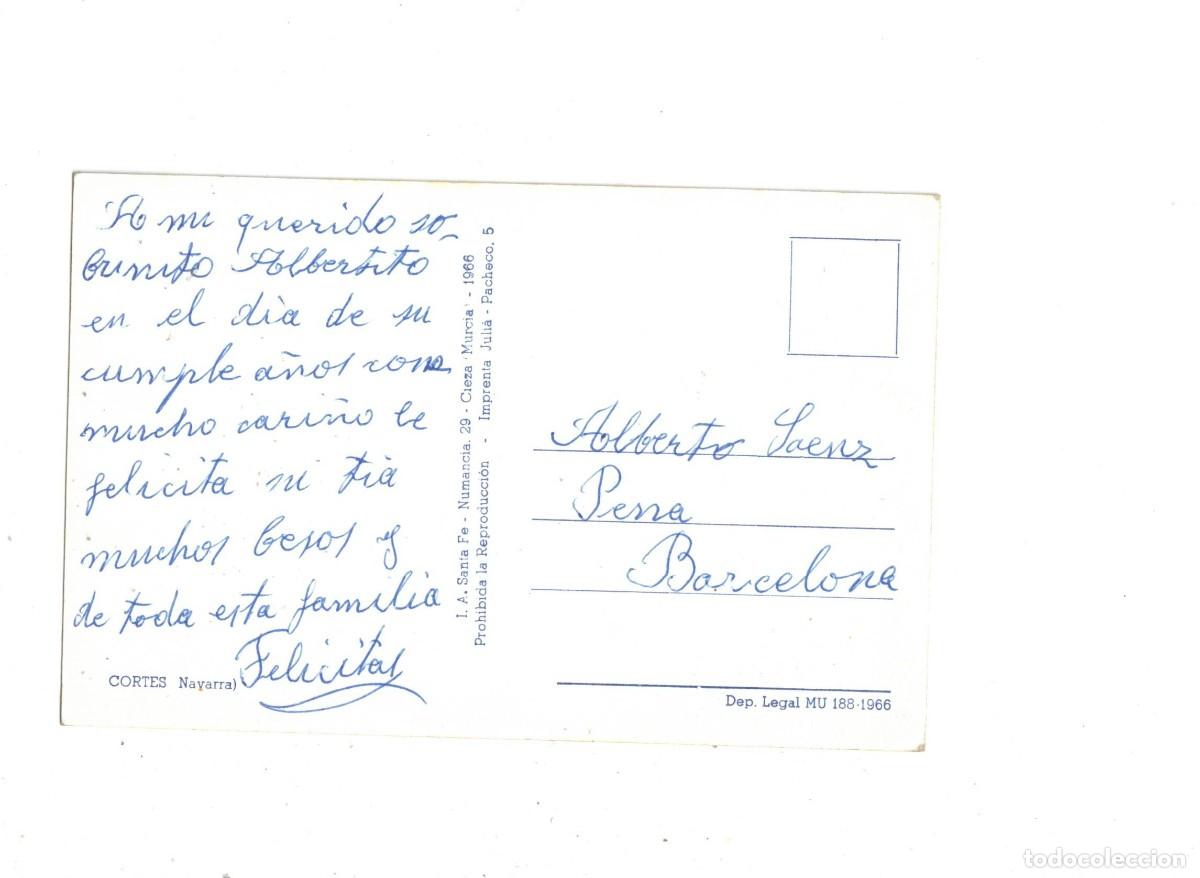 A mi querido so-
brinito Albertito
en el dia de su
cumple años con
mucho cariño le
felicita su tia
muchos besos y
de toda esta familia
Felicitas
CORTES Navarra)
I. A. Santa Fe - Numancia, 29 - Cieza (Murcia) - 1966
Prohibida la Reproducción - Imprenta Juliá - Pacheco, 5
Alberto Saenz
Pena
Barcelona
Dep. Legal MU 188-1966
todocoleccion